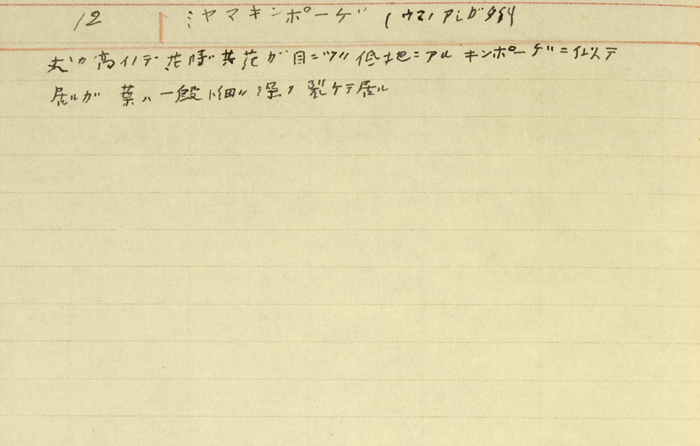 12 ミヤマキンポーゲ (ウマノアシガタ科
丈ガ高イノデ花時其花ガ目ニツク低地ニアルキンポーゲニ似テ
居ルガ葉ハ一般ニ細ク深ク裂ケテ居ル